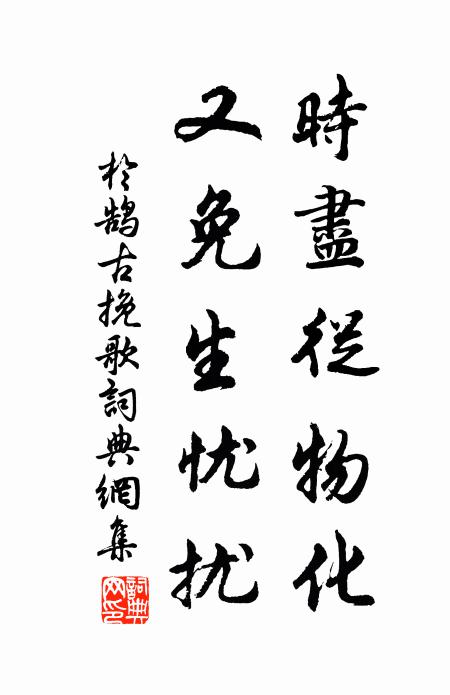 時盡從物化
又免生忧扰
於鹄古挽歌詞典網集
詞典網印